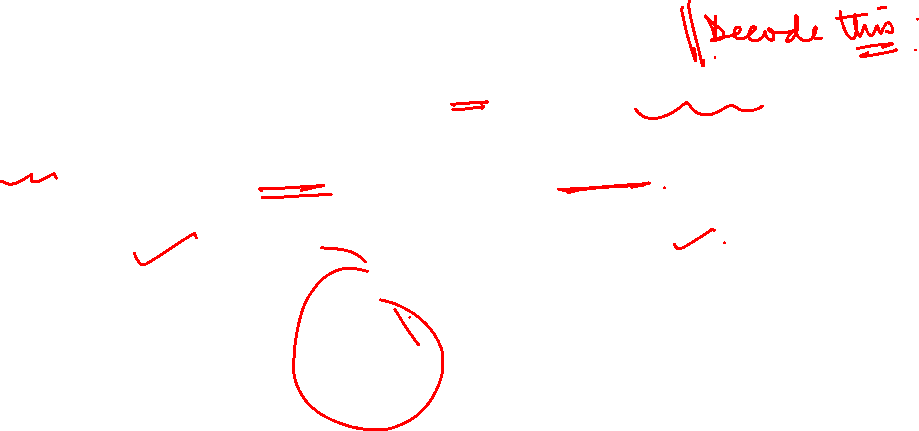 Decode this :